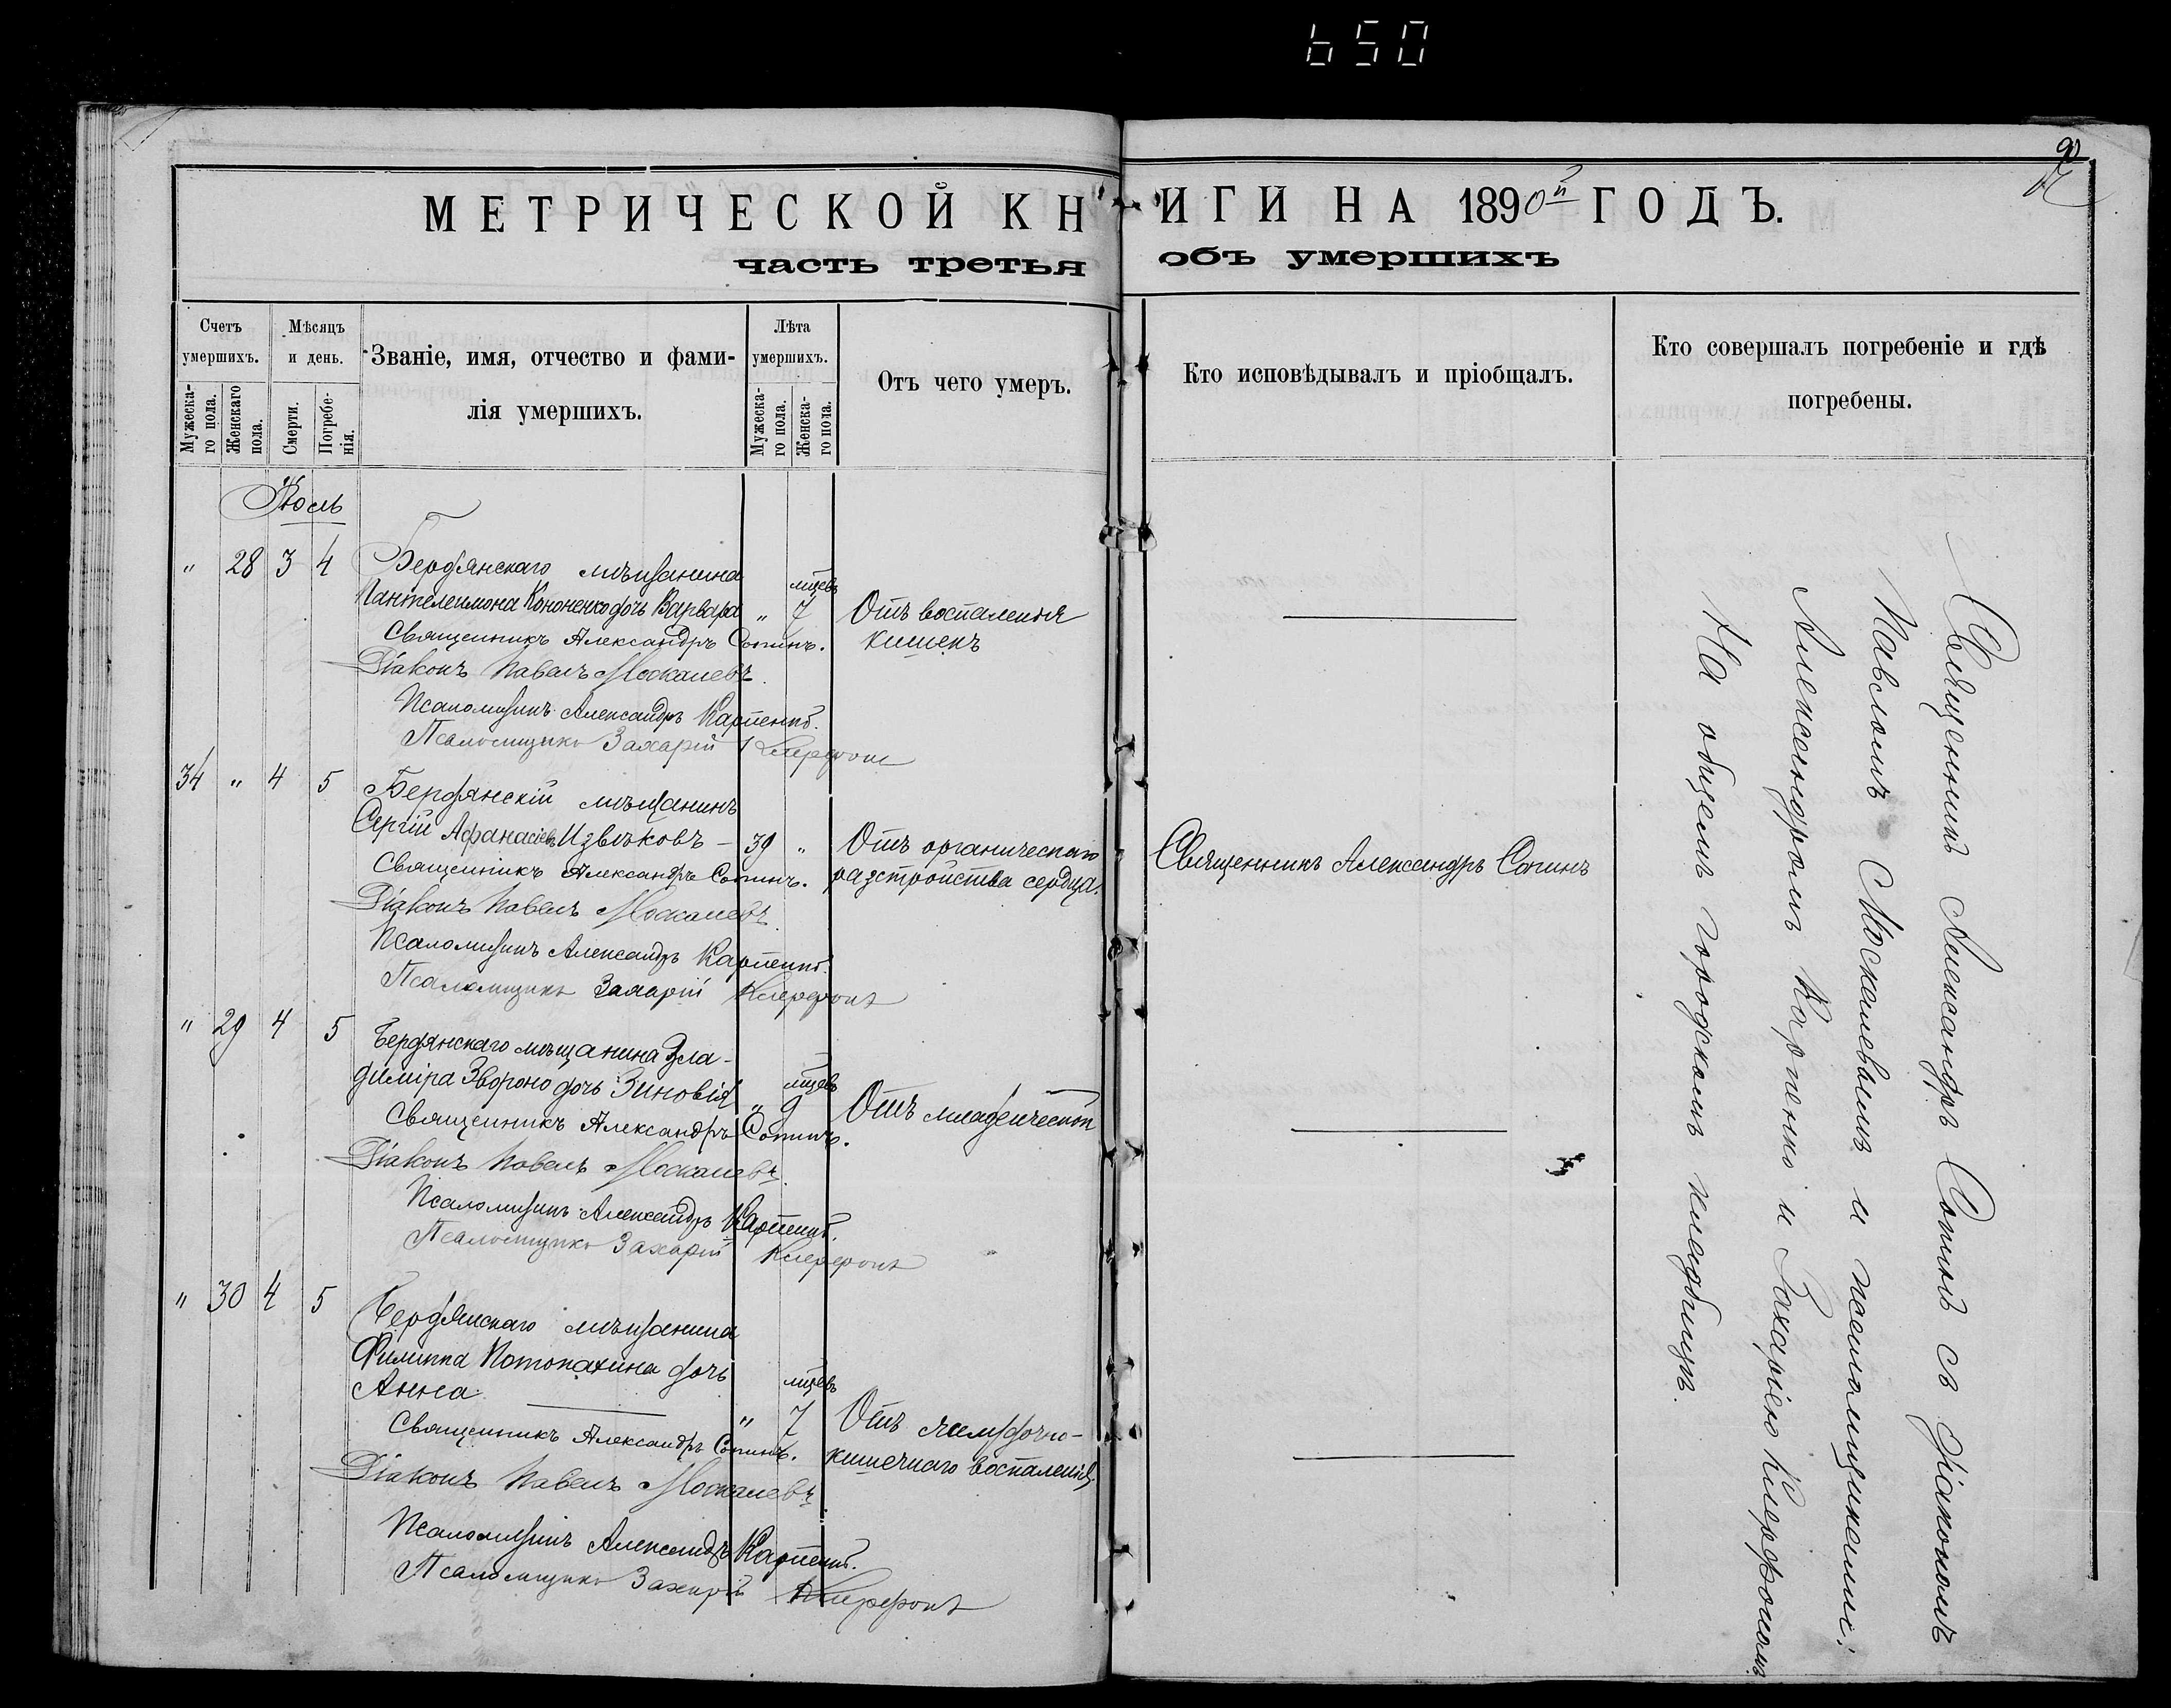 650
90
МЕТРИЧЕСКОЙ КНИГИ НА 1890й ГОДЪ.
часть третья объ умершихъ
Счетъ умершихъ.
Мужеска-
го пола.
Женскаго
пола.
Мѣсяцъ
и день.
Смерти.
Погребе-
нія.
Званіе, имя, отчество и фами-
лія умершихъ.
Лѣта
умершихъ.
Мужеска-
го пола.
Женска-
го пола.
Отъ чего умеръ.
Кто исповѣдывалъ и пріобщалъ.
Кто совершалъ погребеніе и гдѣ
погребены.
Іюль
" 28 3 4 Бердянскаго мѣщанина
Пантелеимона Кононенко дочь Варвара " 7 мцевъ
Отъ воспаленія
кишекъ
Священникъ Александръ Сопинъ.
Діаконъ Павелъ Москалевъ.
Псаломщикъ Александръ Карпенко.
Псаломщикъ Захарій
34 " 4 5 Бердянскій мѣщанинъ
Сергій Афанасіевъ Извѣковъ – 39 "
Отъ органическаго
разстройства сердца.
Священникъ Александръ Сопинъ
Священникъ Александръ Сопинъ.
Діаконъ Павелъ Москалевъ.
Псаломщикъ Александръ Карпенко.
Псаломщикъ Захарій
" 29 4 5 Бердянскаго мѣщанина Вла-
диміра дочь Зиновія " 9 мцевъ
Отъ младенческой
Священникъ Александръ Сопинъ.
Діаконъ Павелъ Москалевъ.
Псаломщикъ Александръ Карпенко.
Псаломщикъ Захарій
" 30 4 5 Бердянскаго мѣщанина
Филиппа дочь
Анна " 7 мцевъ
Отъ
кишечнаго воспаленія
Священникъ Александръ Сопинъ.
Діаконъ Павелъ Москалевъ
Псаломщикъ Александръ Карпенко.
Псаломщикъ Захарій
Священникъ Александръ Сопинъ съ діакономъ
Павломъ Москалевымъ и псаломщиками:
Александромъ Карпенко и Захаріею
На общемъ городскомъ кладбищѣ.